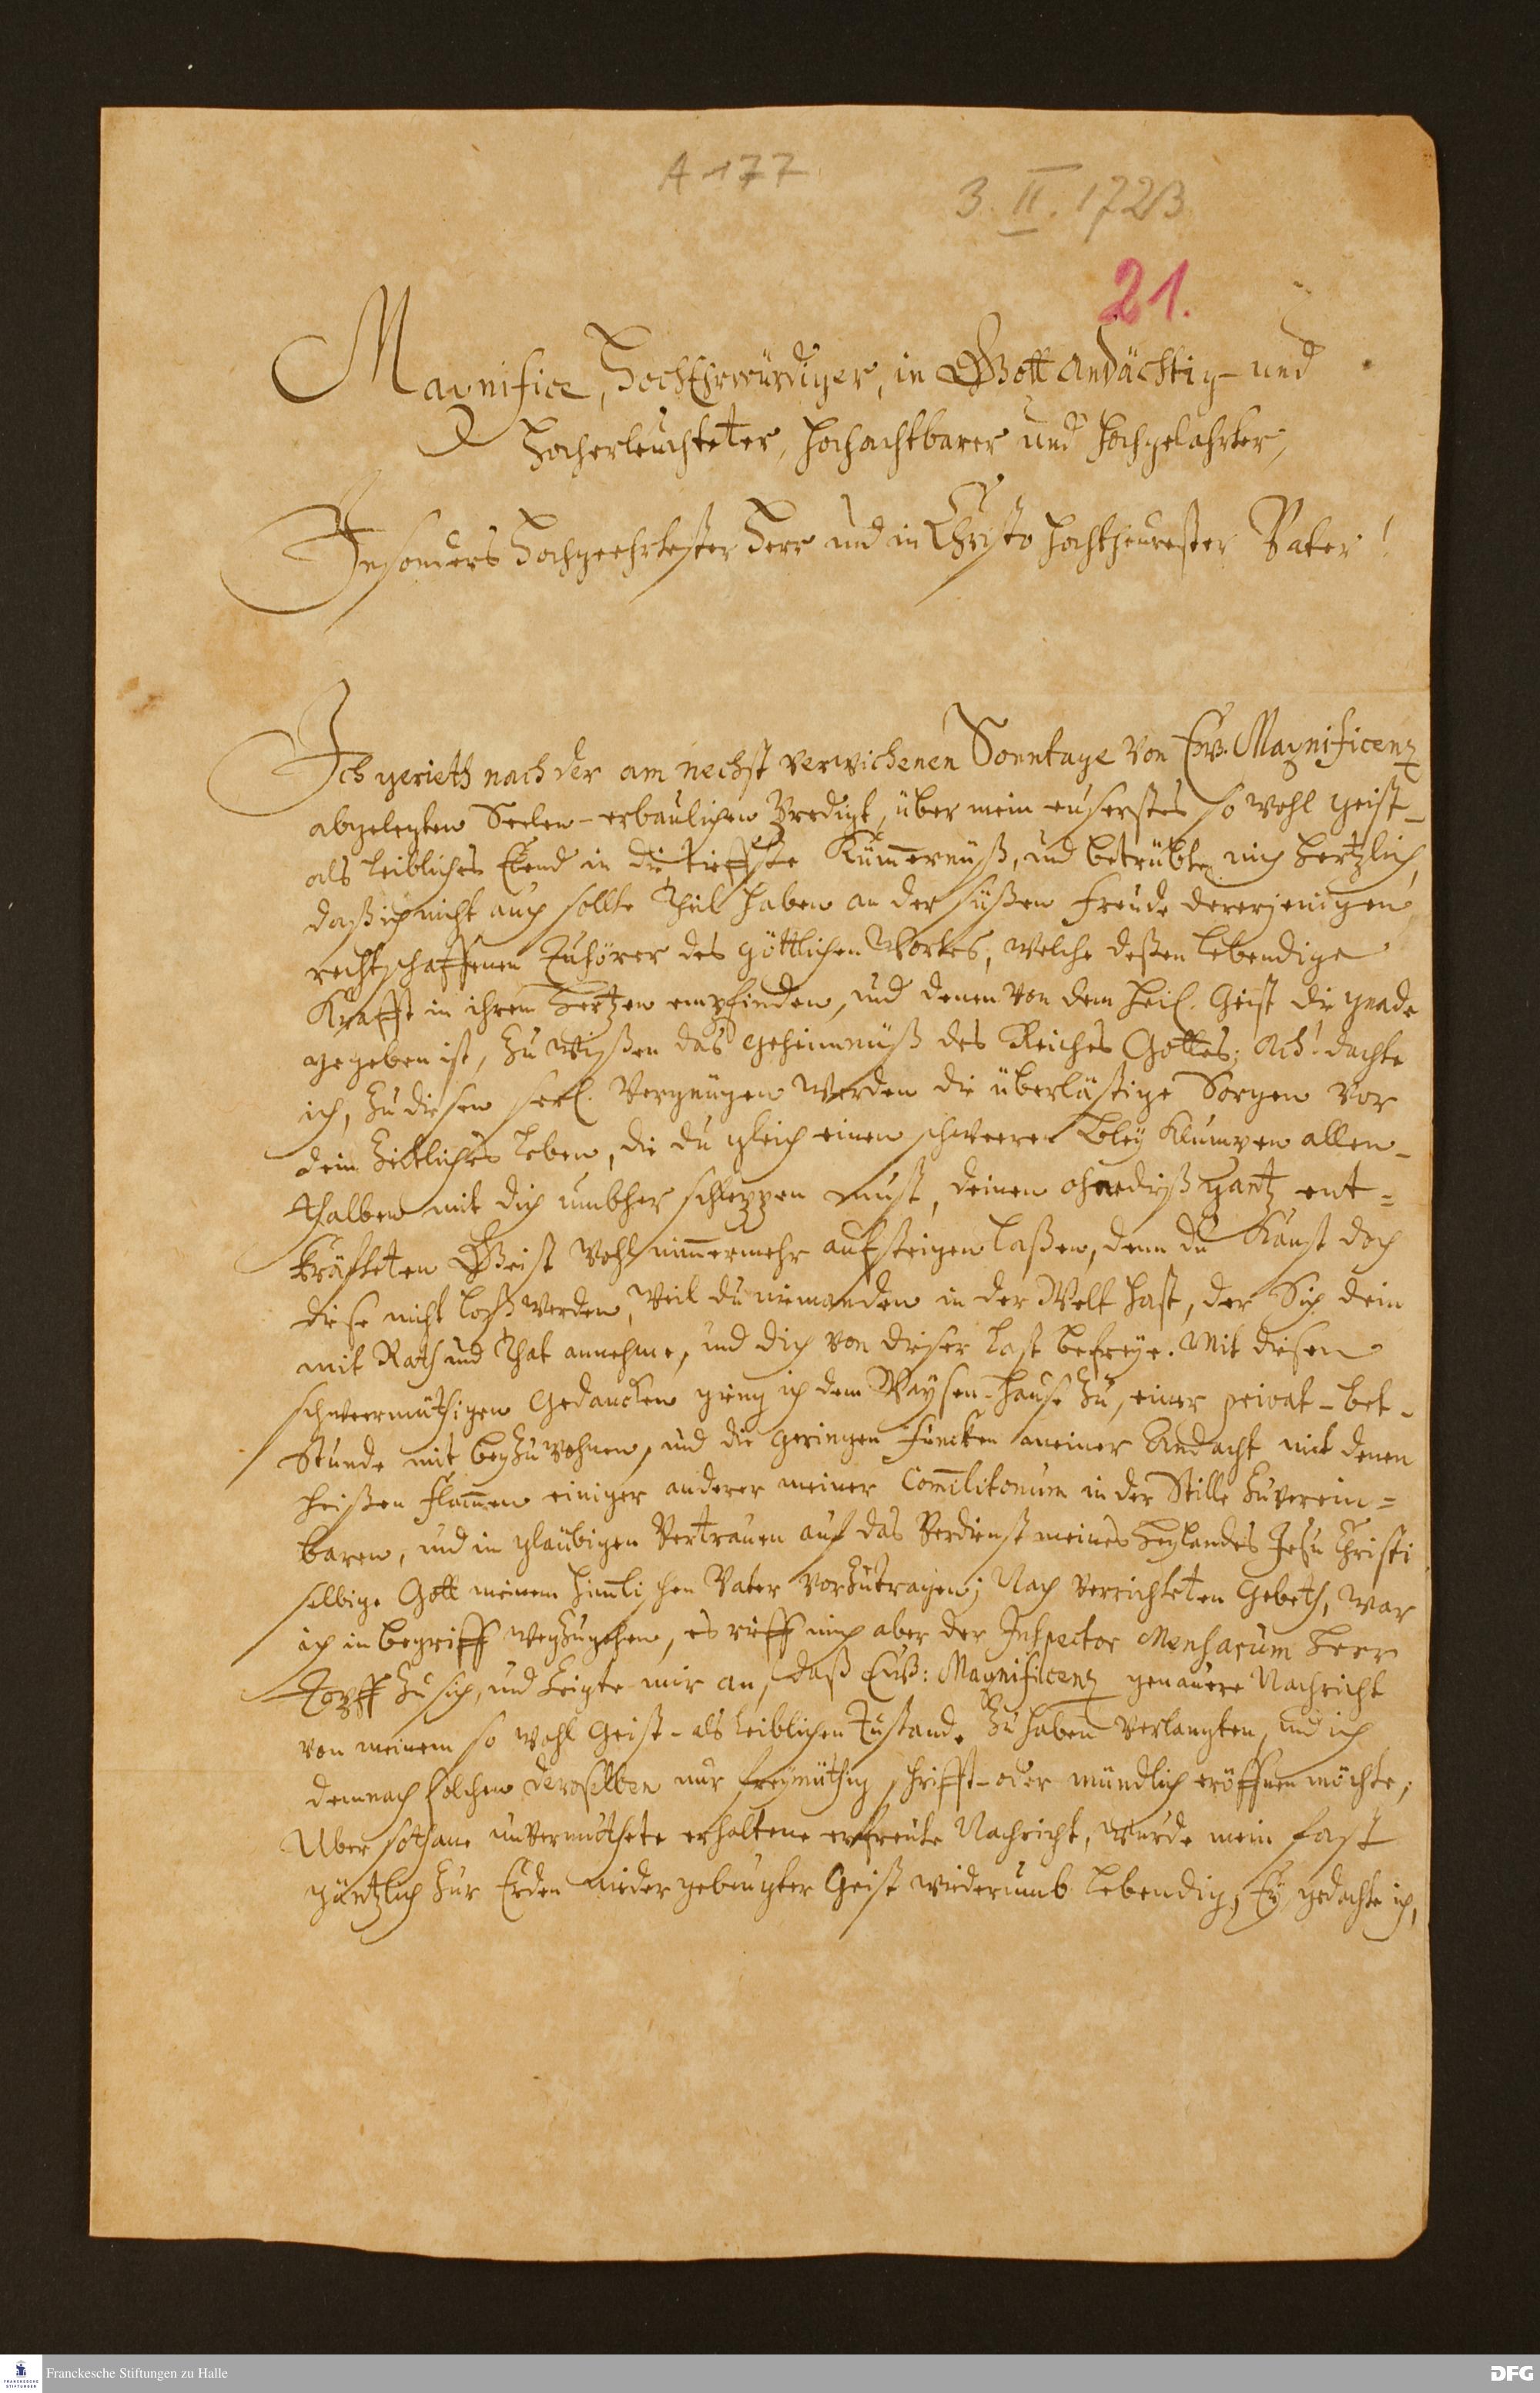 A 177
3. II. 1723
21.
Magnifice, HochEhrwürdiger, in Gott andächtig- und
Hocherleuchteter, hochachtbarer und hochgelahrter,
Insonders Hochgeehrtester Herr und in Christo hochtheurester Vater!
Ich gerieth nach der am nechst verwichenen Sonntage von Ew. Magnificenz
abgelegten Seelen-erbaulichen Predigt, über mein euserstes so wohl geist-
als leibliches Elend in die tieffste Kümmernüß, und betrübte mich hertzlich,
daß ich nicht auch sollte Theil haben an der süßen Freude dererjenigen
rechtschaffenen Zuhörer des göttlichen Wortes, welche deßen lebendige
Krafft in ihrem Hertzen empfinden, und denen von dem heil. Geist die gnade
gegeben ist, zu wißen das geheimnüß des Reiches Gottes; Ach! dachte
ich, zu diesen seel. Vergnügen werden die überlästige Sorgen vor
dein zeitliches leben, die du gleich einen schweeren Bley Klumpen allen-
thalben mit dich umbher schleppen must, deinen ohnediß gantz ent=
kräfteten Geist wohl nimmermehr aufsteigen laßen, denn du kanst doch
diese nicht loß werden, weil du niemanden in der Welt hast, der Sich dein
mit Rath und That annehme, und dich von dieser last befreye. Mit diesen
schweermüthigen Gedancken gieng ich dem Waysen-hause zu, einer privat-bet-
Stunde mit beyzuwohnen, und die geringen Funcken meiner Andacht mit denen
heißen Flammen einiger anderer meiner Commilitonum in der Stille zu verein=
baren, und in gläubigen Vertrauen auf das Verdienst meines Heylandes Jesu Christi
selbige Gott meinem himmlischen Vater vorzutragen; Nach verrichteten Gebeth, war
ich in begriff wegzugehen, es rieff mich aber der Inspector Mensarum Herr
Torff zu sich, und zeigte mir an, daß Ew: Magnificenz genauere Nachricht
von meinem so wohl Geist- als leiblichen Zustande zu haben verlangten, und ich
demnach solchen deroselben nur freymüthig schrifft- oder mündlich eröffnen möchte;
Uber sothane unvermuthete erhaltene erfreute Nachricht, wurde mein fast
gäntzlich zur Erden nieder gebeugter Geist wiederumb lebendig; Ey gedachte ich,
Franckesche Stiftungen zu Halle
DFG